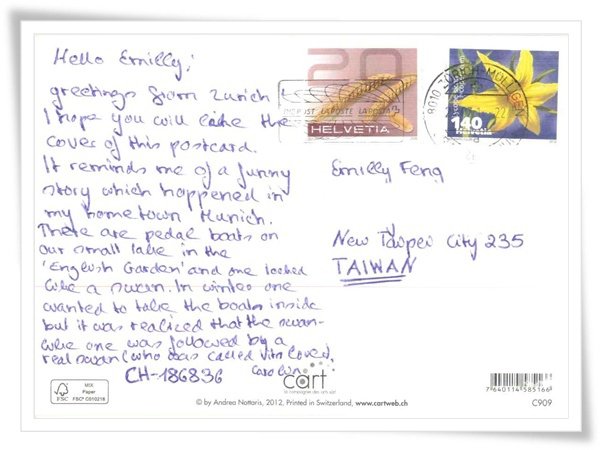 Hello Emilly,
greetings from Zurich!
I hope you will like the
cover of this postcard.
It reminds me of a funny
story which happened in
my hometown Munich.
There are pedal boats on
our small lake in the
'English Garden' and one looked
like a swan. In winter one
wanted to take the boats inside
but it was realized that the swan-
like one was followed by a
real swan (who was called
Carolin
CH-186836
20
HELVETIA
8010 ZÜRICH-MÜLLIGEN
140
Emilly Feng
New Taipei City 235
TAIWAN
FSC
MIX
Paper
FSC® C010218
cart
la compagnie des arts sàrl
© by Andrea Nottaris, 2012, Printed in Switzerland, www.cartweb.ch
7640114585166
C909